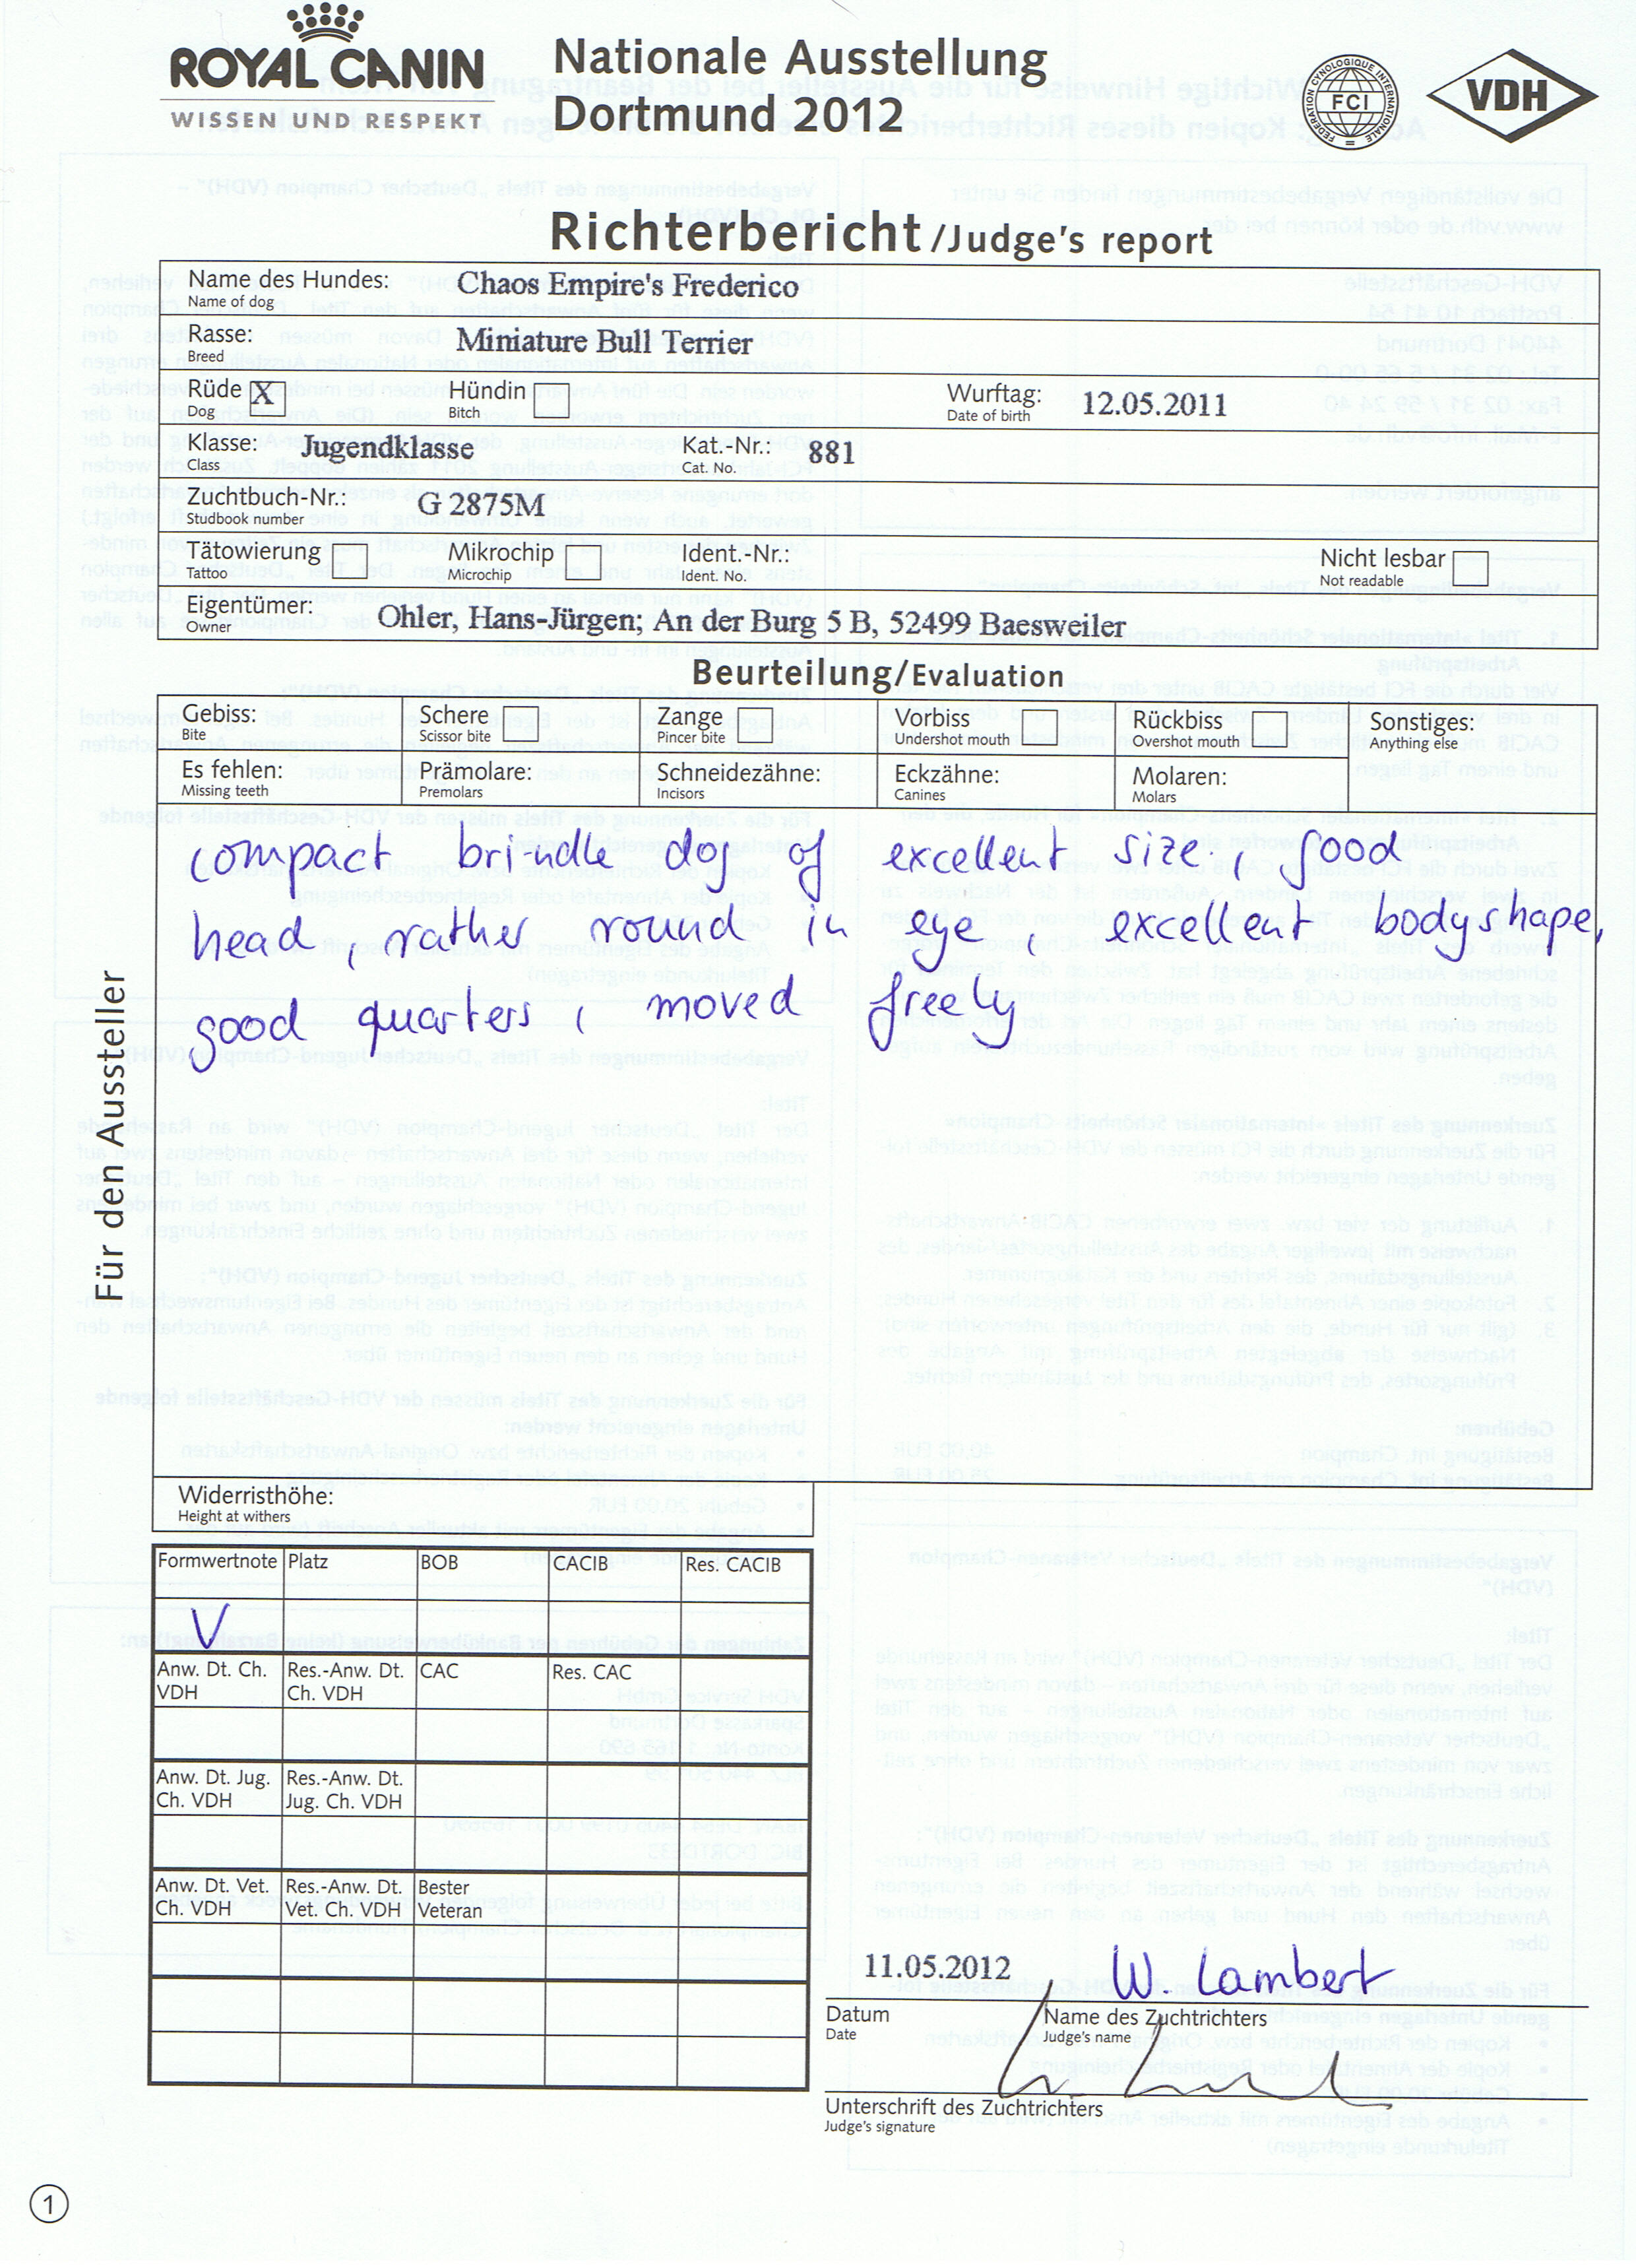 ROYAL CANIN
WISSEN UND RESPEKT
Nationale Ausstellung
Dortmund 2012
FEDERATION CYNOLOGIQUE INTERNATIONALE
FCI
VDH
Richterbericht/Judge's report
Name des Hundes: Chaos Empire's Frederico
Name of dog
Rasse: Miniature Bull Terrier
Breed
Rüde X Hündin Wurftag: 12.05.2011
Dog Bitch Date of birth
Klasse: Jugendklasse Kat.-Nr.: 881
Class Cat. No.
Zuchtbuch-Nr.: G 2875M
Studbook number
Tätowierung Mikrochip Ident.-Nr.: Nicht lesbar
Tattoo Microchip Ident. No. Not readable
Eigentümer: Ohler, Hans-Jürgen; An der Burg 5 B, 52499 Baesweiler
Owner
Beurteilung/Evaluation
Gebiss: Schere Zange Vorbiss Rückbiss Sonstiges:
Bite Scissor bite Pincer bite Undershot mouth Overshot mouth Anything else
Es fehlen: Prämolare: Schneidezähne: Eckzähne: Molaren:
Missing teeth Premolars Incisors Canines Molars
compact brindle dog of excellent size, good
head, rather round in eye, excellent bodyshape,
good quarters, moved freely
Für den Aussteller
Widerristhöhe:
Height at withers
Formwertnote Platz BOB CACIB Res. CACIB
V
Anw. Dt. Ch. Res.-Anw. Dt. CAC Res. CAC
VDH Ch. VDH
Anw. Dt. Jug. Res.-Anw. Dt.
Ch. VDH Jug. Ch. VDH
Anw. Dt. Vet. Res.-Anw. Dt. Bester
Ch. VDH Vet. Ch. VDH Veteran
11.05.2012 W. Lambert
Datum Name des Zuchtrichters
Date Judge's name
Unterschrift des Zuchtrichters
Judge's signature
1